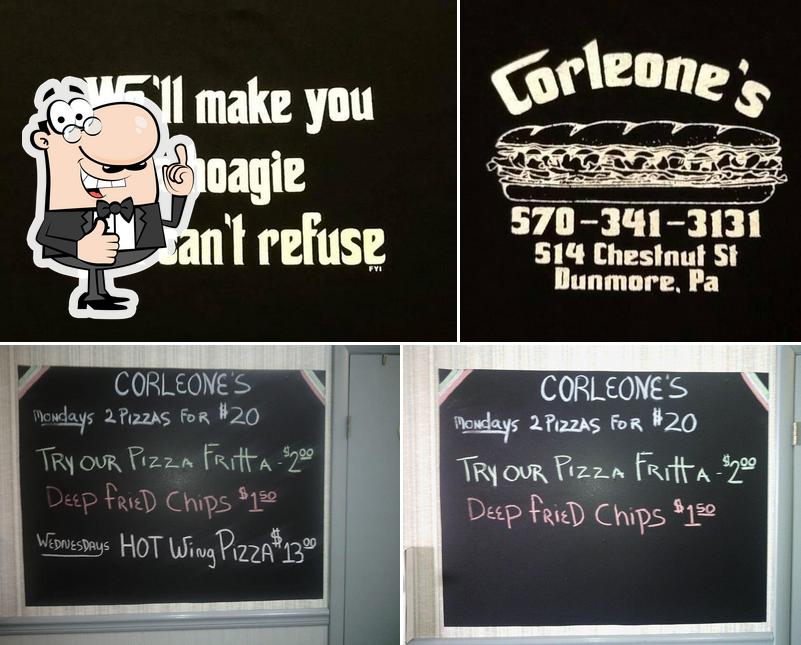 We'll make you
hoagie
can't refuse
FYI
Corleone's
570-341-3131
514 Chestnut St
Dunmore, Pa
CORLEONE'S
Mondays 2 PIZZAS FOR $20
TRY OUR PIZZA FRITTA - $2.00
DEEP FRIED CHIPS $1.50
WEDNESDAYS HOT Wing PIZZA $13.00
CORLEONE'S
Mondays 2 PIZZAS FOR $20
TRY OUR PIZZA FRITTA - $2.00
DEEP FRIED CHIPS $1.50